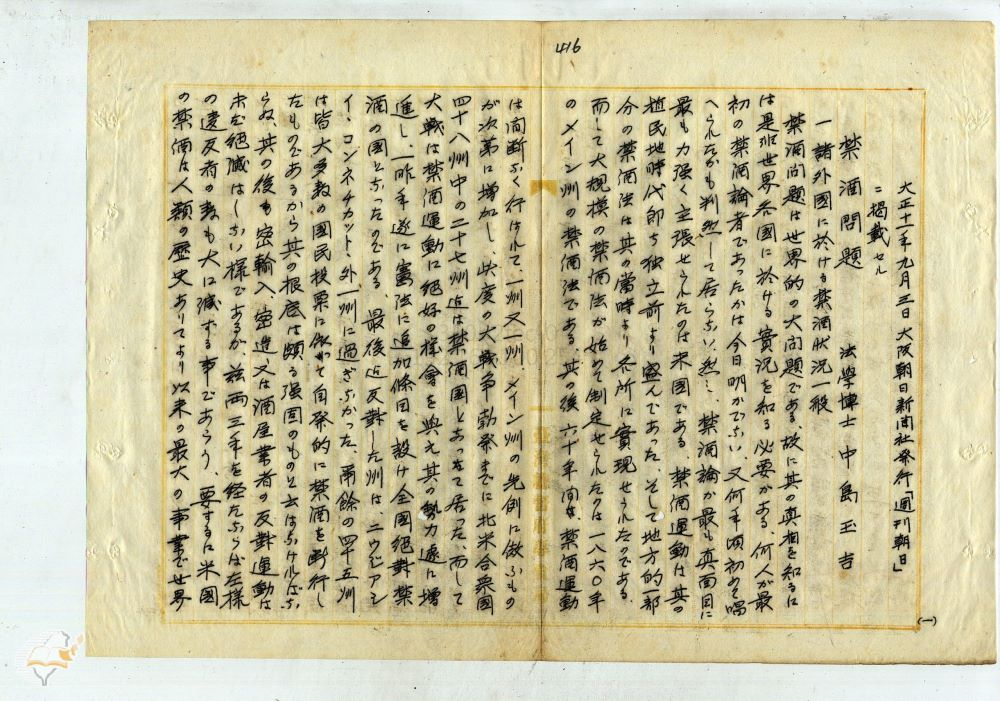 416
大正十一年九月三日大阪朝日新聞社発行「週刊朝日」
ニ掲載セル
禁酒問題　法學博士　中島玉吉
一　諸外國に於ける禁酒状況一般
禁酒問題は世界的の大問題である、故に其の真相を知るに
は是非世界各國に於ける實況を知る必要がある、何人が最
初の禁酒論者であつたかは今日明かでない、又何年頃初めて唱
へられたかも判然して居らない、然し、禁酒論が最も真面目に
最も力強く主張せられたのは米國である、禁酒運動は其の
植民地時代即ち独立前より盛んであつた、そして地方的一部
分の禁酒法は其の當時より各所に實現せられたのである、
而して大規模の禁酒法が始めて制定せられたのは一八六〇年
のメイン州の禁酒法である、其の後六十年間は、禁酒運動
は間断なく行はれて、一州又一州、メイン州の先例に倣ふもの
が次第に増加し、此度の大戦争勃発までに北米合衆國
四十八州中の二十七州迄は禁酒國となつて居つた、而して
大戦は禁酒運動に絶好の機會を與え其の勢力遽に増
進し、一昨年遂に憲法に追加條目を設け全國絶對禁
酒の國となつたのである、最後迄反對した州は、ニウゼアシ
イ、コンネチカット、外一州に過ぎなかつた、爾餘の四十五州
は皆大多数の國民投票に依つて自発的に禁酒を断行し
たものであるから其の根底は頗る强固のものと云はなければな
らぬ、其の後も密輸入、密造又は酒屋業者の反對運動は
未だ絶滅はしない様であるが、茲両三年を経たならば左様
の違反者の数も大に減ずる事であらう、要するに米國
の禁酒は人類の歴史ありてより以来の最大の事業で世界
(一)